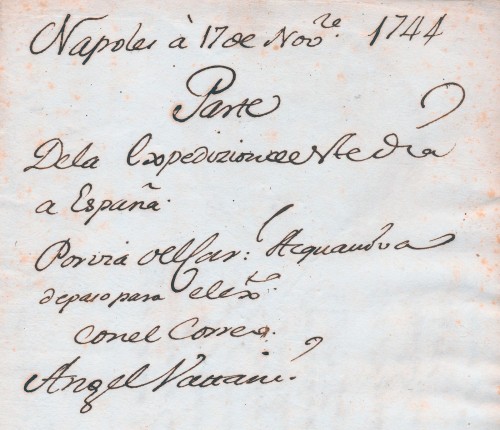 Napoles à 17 de Nov.re 1744
Parte
Dela Expedizion de
a España
Por via del Car: Acquaviva
de paso para
con el Correo
Angel